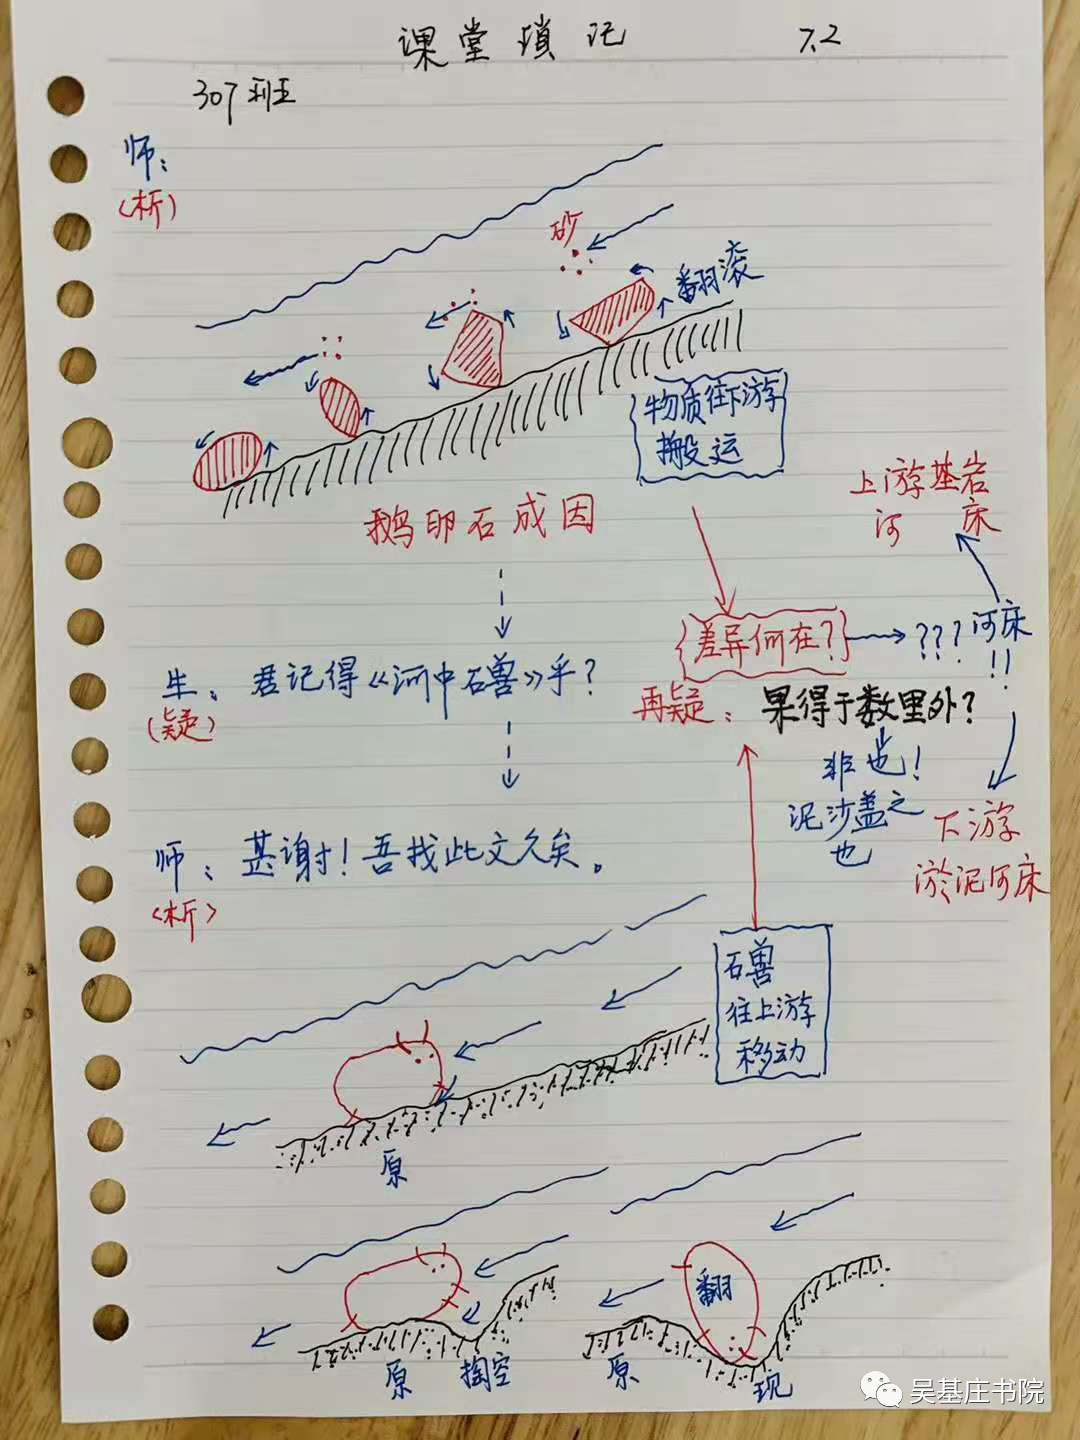 课堂琐记 7.2
307班
师：
(析)
砂
翻滚
物质往下游
搬运
鹅卵石成因
上游基岩
河 床
差异何在？
???河床
!!
生：君记得《河中石兽》乎？
(疑)
再疑：果得于数里外？
非也！
泥沙盖之
也
下游
淤泥河床
师：甚谢！吾找此文久矣。
<析>
石兽
往上游
移动
原
翻
原 掏空
原 现
吴基庄书院